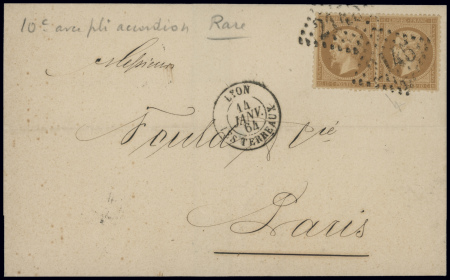 10c avec pli accordéon Rare
Messieurs
LYON
14
JANV.
64
LES TERREAUX
Fould & Cie
Paris